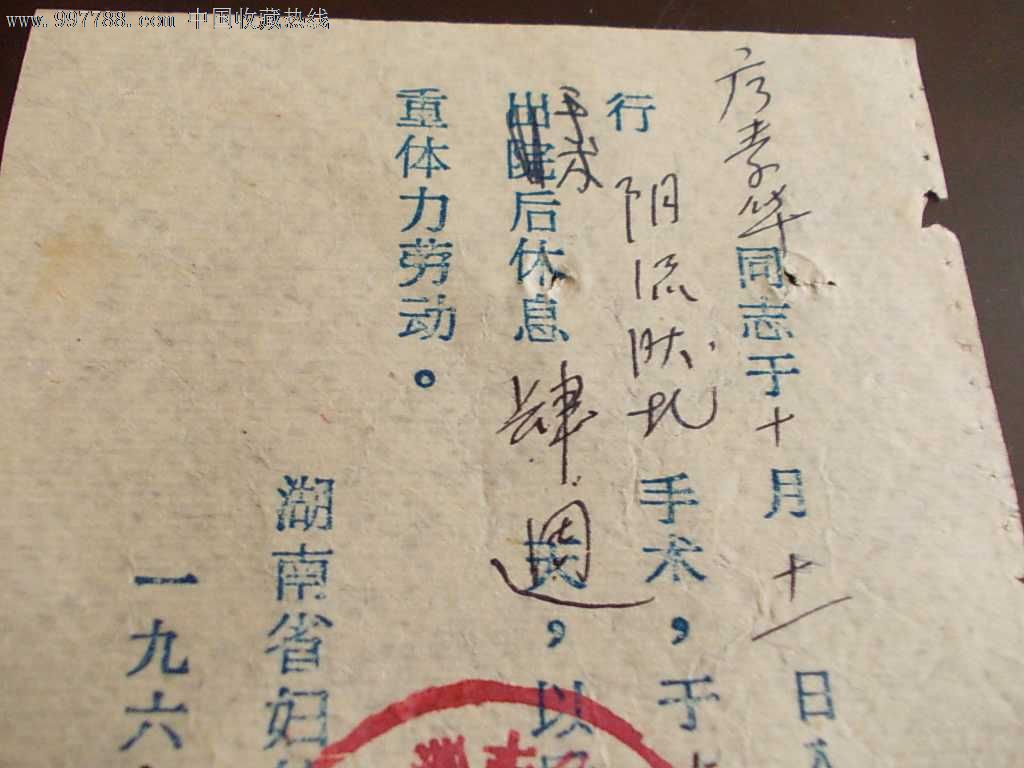 www.997788.com 中国收藏热线
华同志于十月十一日
行阴手术,于
手术后休息肆週,以
重体力劳动。
湖南省妇
一九六
湖南